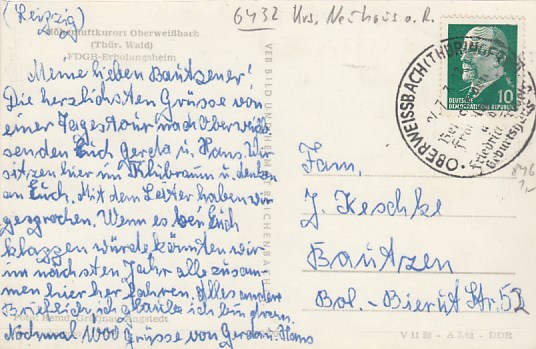 (Leipzig)
6432 Krs. Neuhaus a. R.
Höhenluftkurort Oberweißbach
(Thür. Wald)
FDGB-Erholungsheim
Meine lieben Bautzener!
Die herzlichsten Grüsse von
einer Tagestour nach Oberweißb.
senden Euch Gerda u. Hans. Wir
sitzen hier im Klubraum u. denken
an Euch. Mit dem Leiter haben wir
gesprochen. Wenn es bei Euch
klappen würde könnten wir
im nächsten Jahr alle zusam-
men hier her fahren. Alles andere
brieflich, ich glaube ich bin dran.
Nochmal 1000 Grüsse von Gerda u. Hans
VEB BILD UND HEIMAT REICHENBACH
DEUTSCHE
DEMOKRATISCHE REPUBLIK
10
OBERWEISSBACH (THÜRINGER
Friedrich
Geburtshaus
Fam.
J. Keschke
Bautzen
Bol.-Bierut Str. 52
V 11 28 - A 342 - DDR